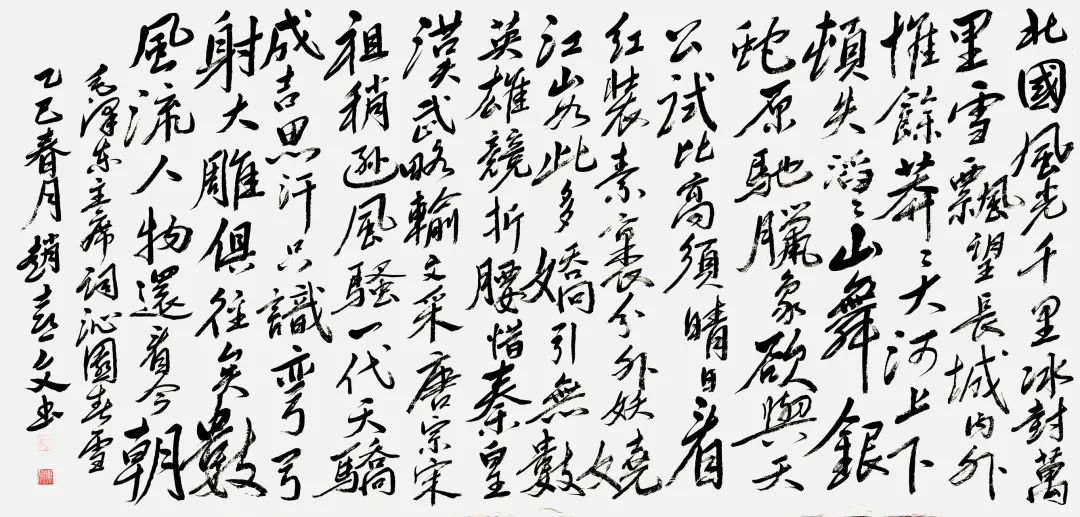 北國風光千里冰封萬
里雪飄望長城内外
惟餘莽〻大河上下
頓失滔〻山舞銀
蛇原馳臘象欲與天
公試比高須晴日看
紅裝素裹分外妖嬈
江山如此多嬌引無數
英雄競折腰惜秦皇
漢武略輸文采唐宗宋
祖稍遜風騷一代天驕
成吉思汗只識彎弓
射大雕俱往矣數
風流人物還看今朝
毛澤东主席詞沁園春雪
乙巳春月趙喜文书